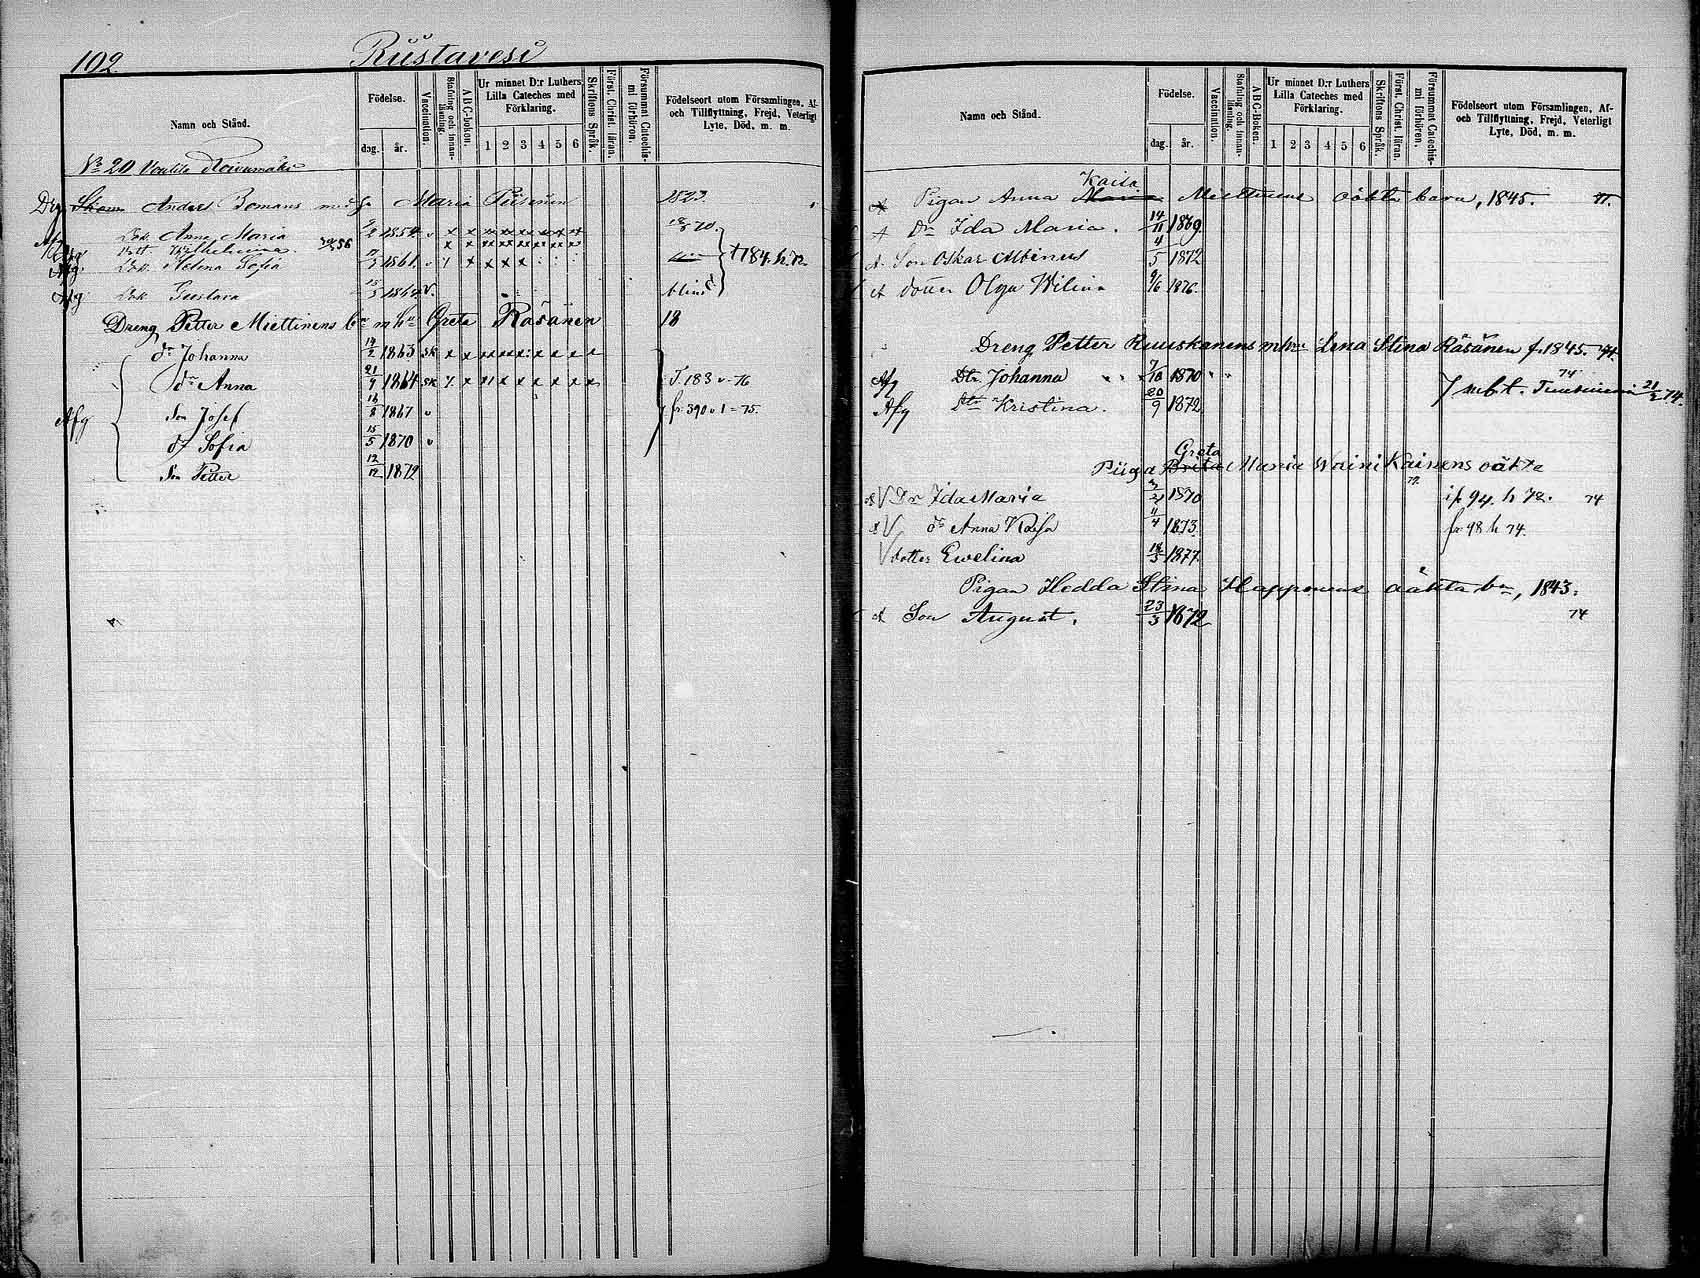 102. Riistavesi
Namn och Stånd.
Födelse.
dag. år.
Vaccination.
Stafning och innan-läsning.
ABC-boken.
Ur minnet D:r Luthers Lilla Cateches med Förklaring.
1 2 3 4 5 6
Skriftens Språk.
Först. Christ. läran.
Försummat Catechis-mi förhören.
Födelseort utom Församlingen, Af- och Tillflyttning, Frejd, Veterligt Lyte, Död, m. m.
No 20 Koivumäki
Drg Anders Bomans Maria 1823
Dot. Anna Maria 1854 v x x 70
Dott Wilhelmina 56 x x
Afg. Dot. Helena Sofia 1861 x x x x † 184. h. 72.
Afg Dot. Gustava v. blind
Dreng Petter Miettinens bn m hu Greta Räsänen 18
dr Johanna 14/2 1863 sk x x x x x x x x
dr Anna 21/9 1864 sk x x x x x x x T. 183 v - 76
Afg Son Josef 16/8 1867 v fr. 390 v 1 = 75.
dr Sofia 15/5 1870 v
Son Petter 12/12 1872
Namn och Stånd.
Födelse.
dag. år.
Vaccination.
Stafning och innan-läsning.
ABC-Boken.
Ur minnet D:r Luthers Lilla Cateches med Förklaring.
1 2 3 4 5 6
Skriftens Språk.
Först. Christ. läran.
Försummat Catechis-mi förhören.
Födelseort utom Församlingen, Af- och Tillflyttning, Frejd, Veterligt Lyte, Död, m. m.
Kaisa
Pigan Anna Miettinens oäkta barn, 1845. 77.
Dr Ida Maria. 14/11 1869
Son Oskar Albinus 4/5 1872
dotter Olga Wilina 9/6 1876.
Dreng Petter Ruuskanens m hu Lena Stina Räsänen f. 1845. 74.
Afg Dtr. Johanna 7/10 1870 74
m. b. t. Tuusniemi 21/2 74.
Afg Dtr Kristina. 20/9 1872
Greta
Piiga Brita Maria Wainikainens oäkta 77.
V Dr Ida Maria 1870 fr 94. h 72. 74
V dr Anna Kaisa 11/4 1873. fr 98 h 74.
V dotter Ewelina 18/3 1877.
Pigan Hedda Stina Happonens oäkta bn, 1843.
Son August. 23/3 1872 74